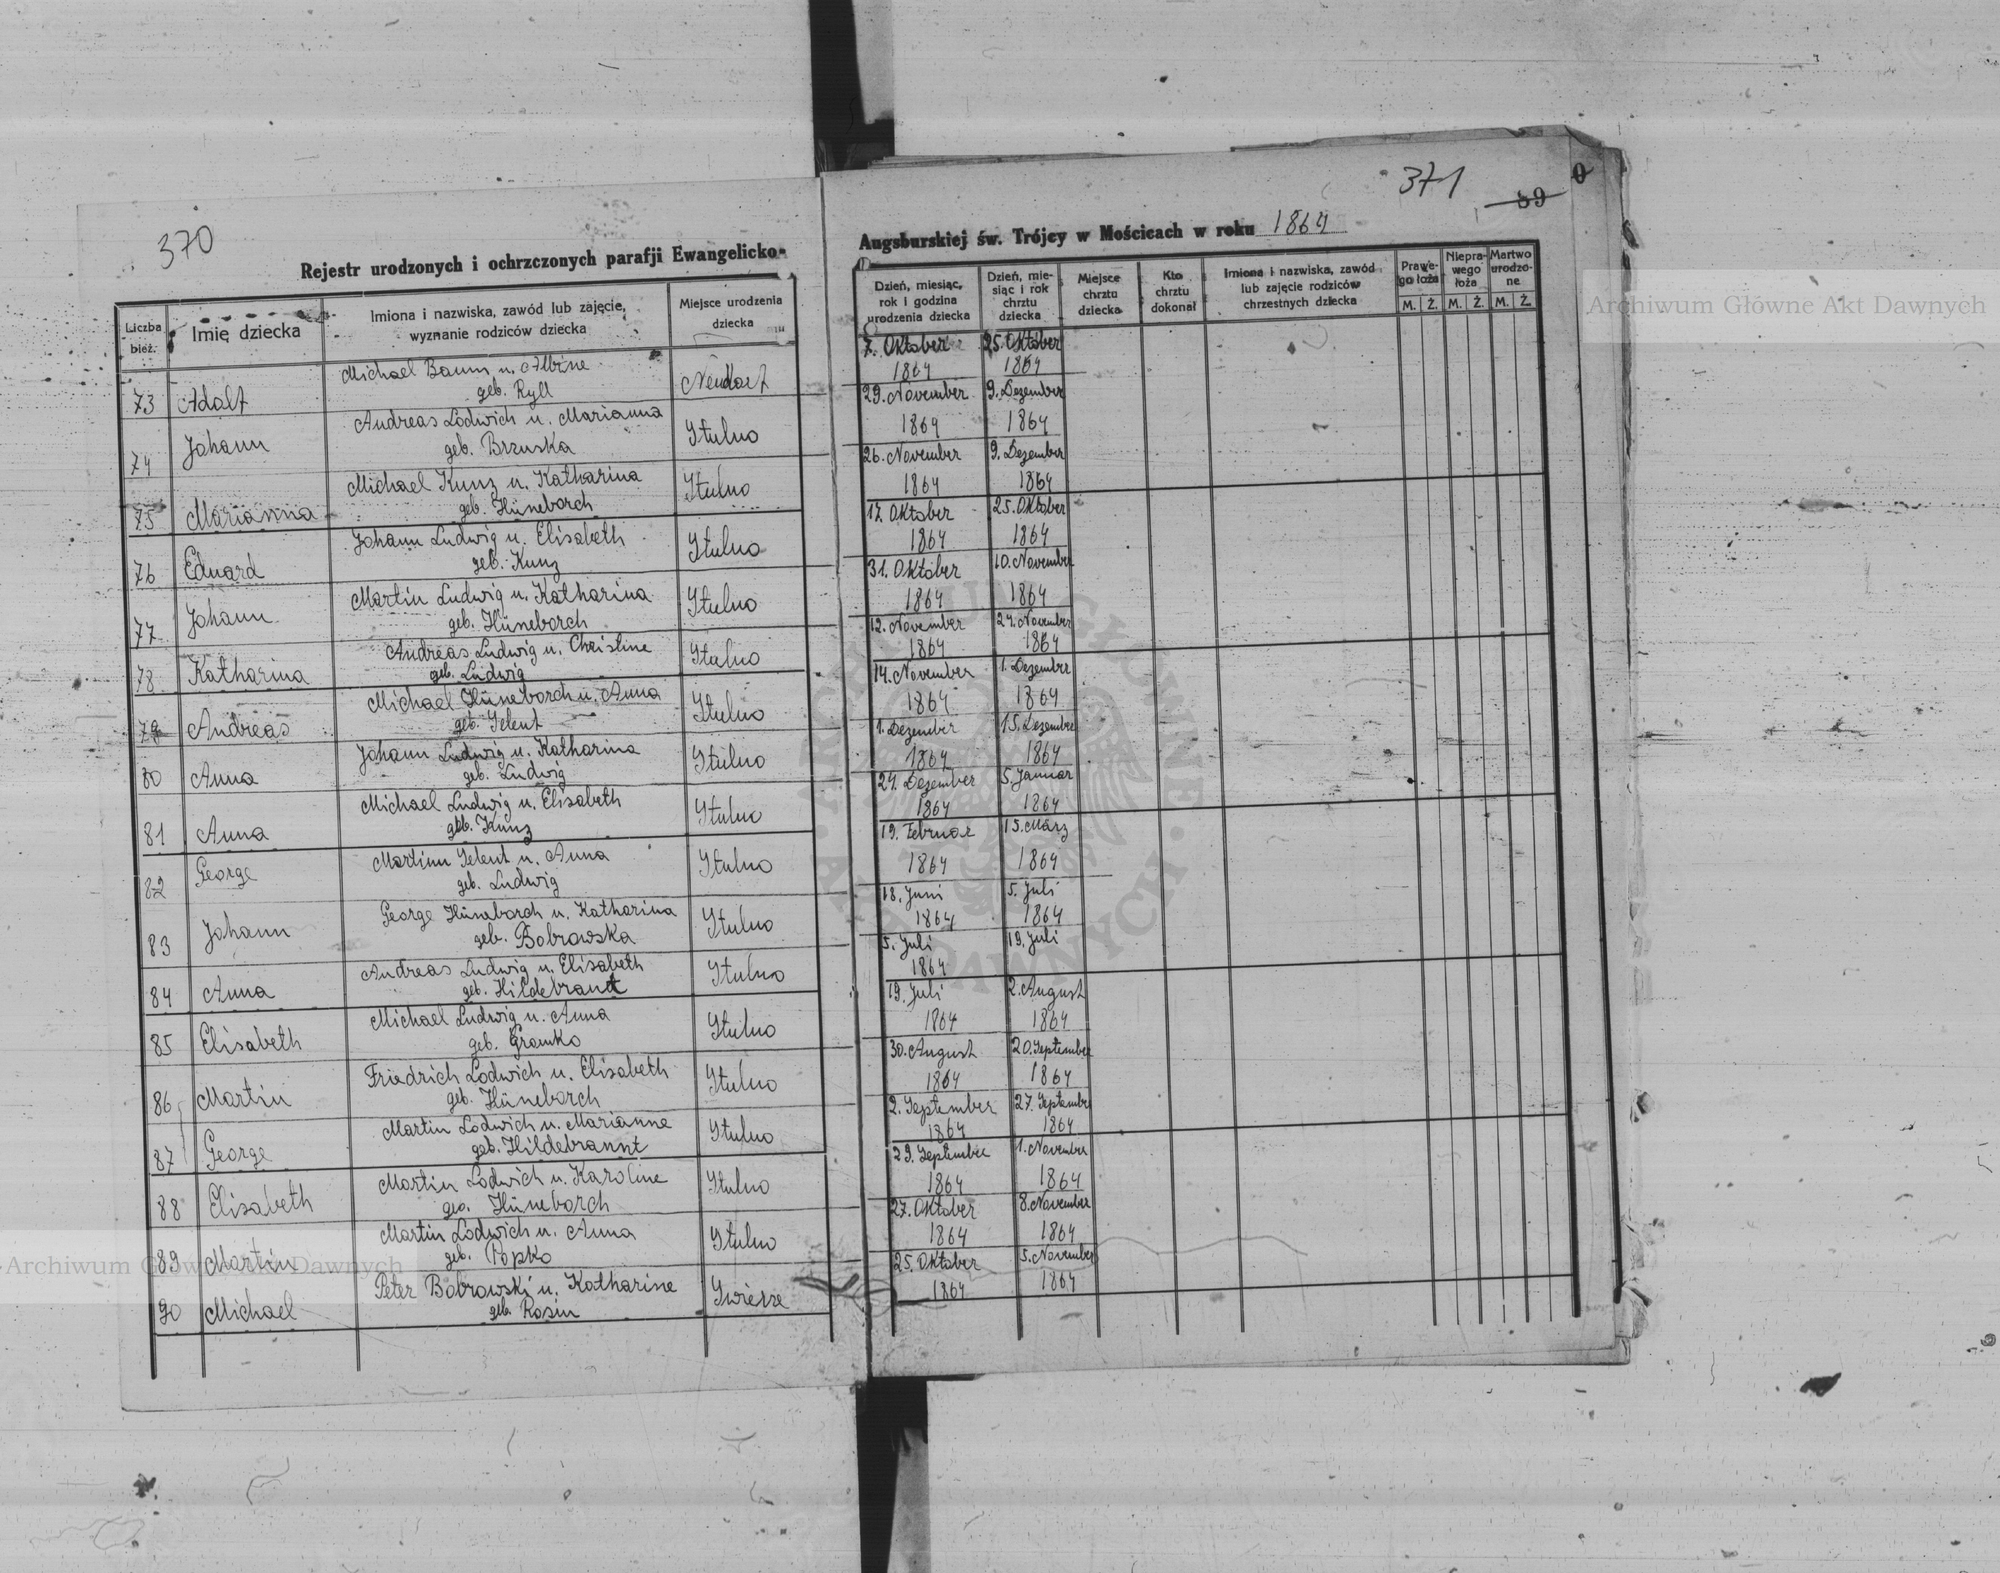 370
371
39
0
Rejestr urodzonych i ochrzczonych parafji Ewangelicko-
Augsburskiej św. Trójcy w Mościcach w roku 1864
Liczba bież.
Imię dziecka
Imiona i nazwiska, zawód lub zajęcie, wyznanie rodziców dziecka
Miejsce urodzenia dziecka
Dzień, miesiąc, rok i godzina urodzenia dziecka
Dzień, miesiąc i rok chrztu dziecka
Miejsce chrztu dziecka
Kto chrztu dokonał
Imiona i nazwiska, zawód lub zajęcie rodziców chrzestnych dziecka
Prawego łoża
Nieprawego łoża
Martwo urodzone
M. Ż. M. Ż. M. Ż.
73 Adolf Michael Baum u. Albine geb. Ryll Neudorf 7. Oktober 1864 25. Oktober 1864
74 Johann Andreas Lodwich u. Marianna geb. Brzuska Stulno 29. November 1864 9. Dezember 1864
75 Marianna Michael Kunz u. Katharina geb. Hüneborch Stulno 26. November 1864 9. Dezember 1864
76 Eduard Johann Ludwig u. Elisabeth geb. Kunz Stulno 17. Oktober 1864 25. Oktober 1864
77 Johann Martin Ludwig u. Katharina geb. Hüneborch Stulno 31. Oktober 1864 10. November 1864
78 Katharina Andreas Ludwig u. Christine geb. Ludwig Stulno 12. November 1864 24. November 1864
79 Andreas Michael Hüneborch u. Anna geb. Selent Stulno 14. November 1864 1. Dezember 1864
80 Anna Johann Ludwig u. Katharina geb. Ludwig Stulno 1. Dezember 1864 15. Dezember 1864
81 Anna Michael Ludwig u. Elisabeth geb. Kunz Stulno 24. Dezember 1864 5. Januar 1864
82 George Martinn Selent u. Anna geb. Ludwig Stulno 19. Februar 1864 15. März 1864
83 Johann George Hüneborch u. Katharina geb. Bobrowska Stulno 18. Juni 1864 5. Juli 1864
84 Anna Andreas Ludwig u. Elisabeth geb. Hildebrant Stulno 5. Juli 1864 19. Juli
85 Elisabeth Michael Ludwig u. Anna geb. Gromko Stulno 19. Juli 1864 2. August 1864
86 Martin Friedrich Lodwich u. Elisabeth geb. Hüneborch Stulno 30. August 1864 20. September 1864
87 George Martin Lodwich u. Marianne geb. Hildebrannt Stulno 2. September 1864 27. September 1864
88 Elisabeth Martin Lodwich u. Karoline geb. Hüneborch Stulno 29. September 1864 1. November 1864
89 Martin Martin Lodwich u. Anna geb. Popko Stulno 27. Oktober 1864 8. November 1864
90 Michael Peter Bobrowski u. Katharine geb. Rosin Swierze 25. Oktober 1864 5. November 1864
Archiwum Główne Akt Dawnych
Archiwum Główne Akt Dawnych
ARCHIWUM GŁÓWNE AKT DAWNYCH